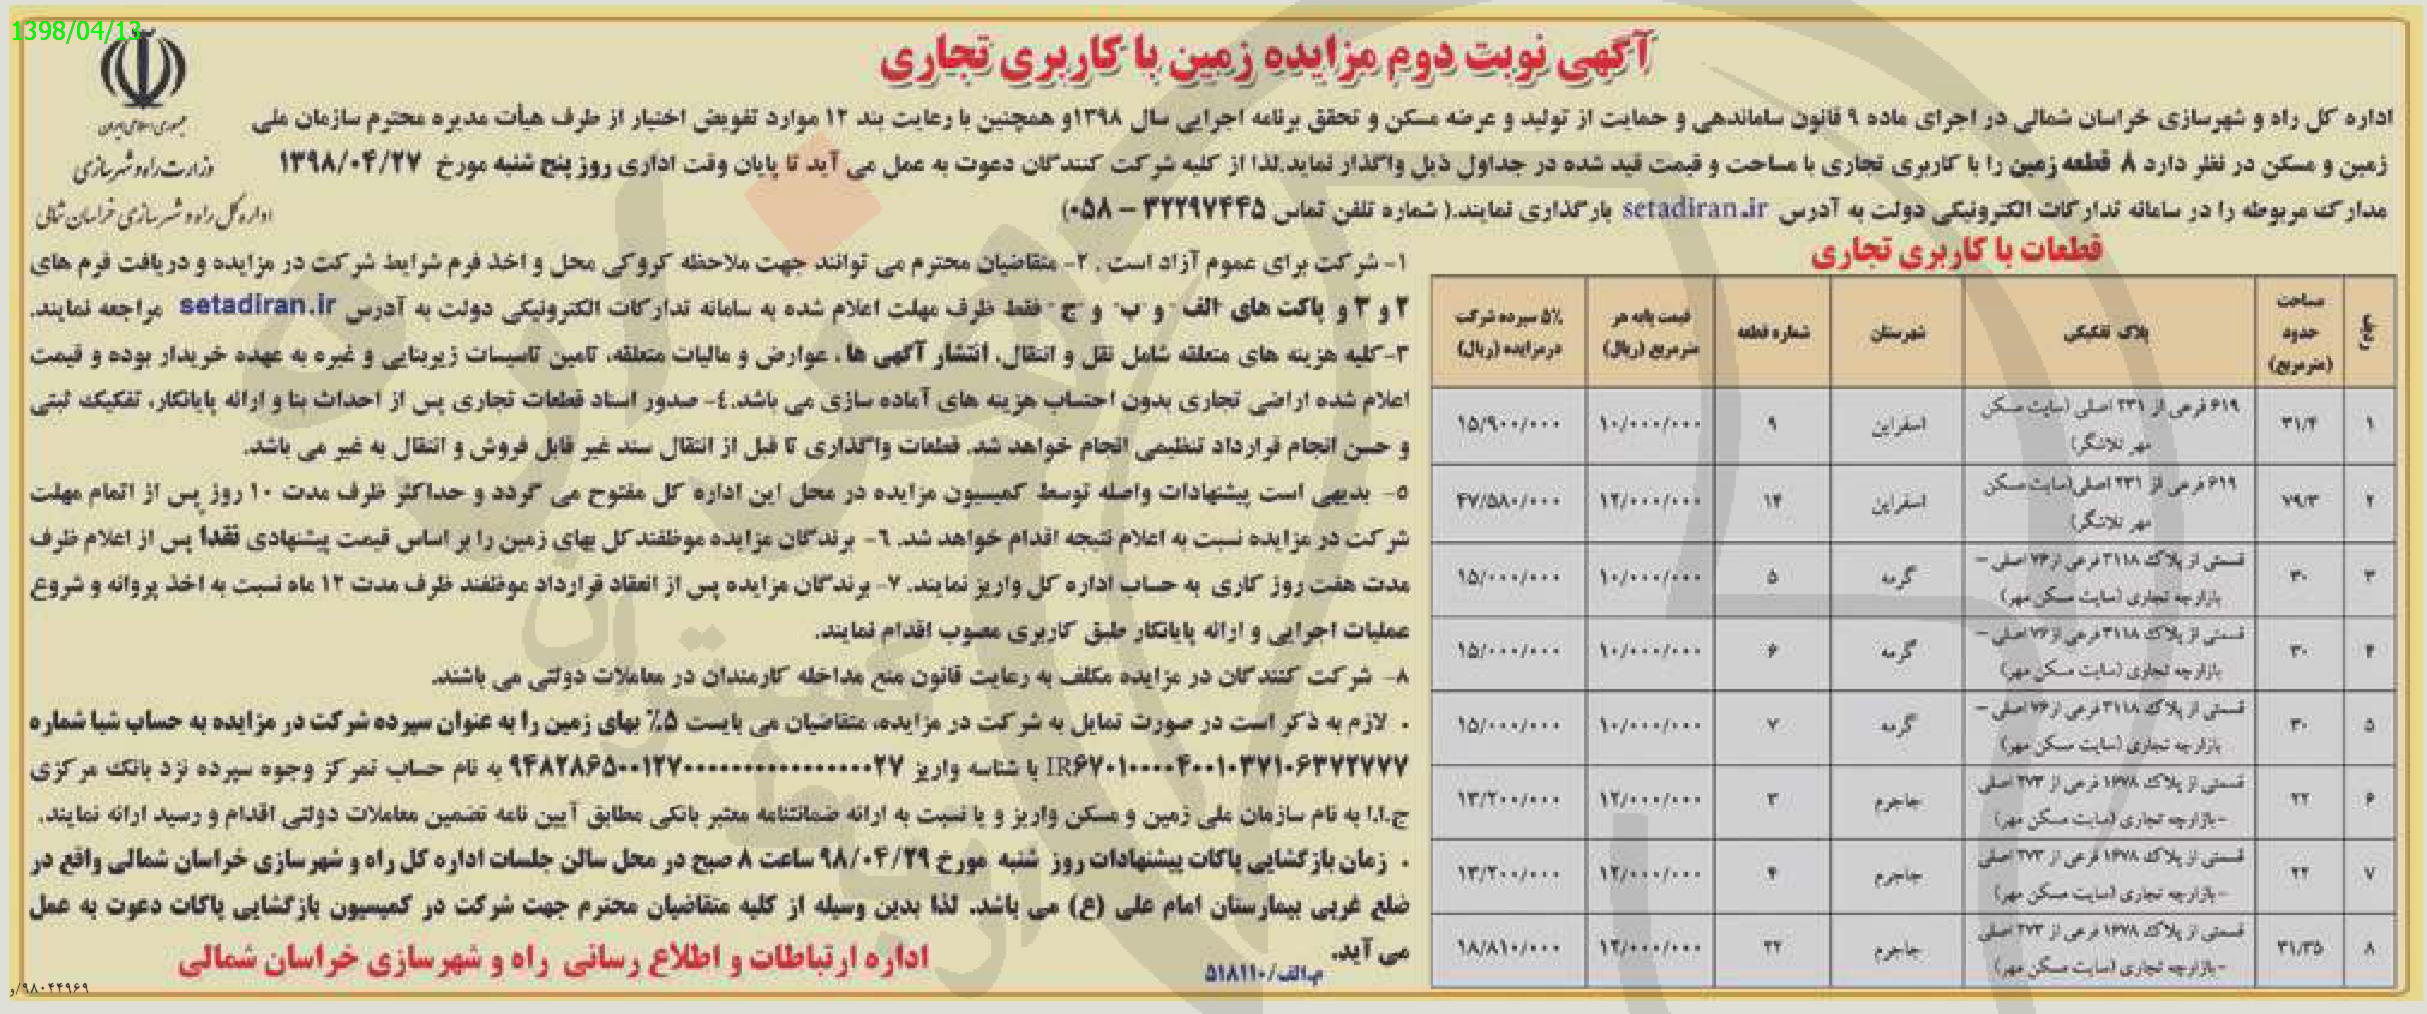 1398/04/13
آگهی نوبت دوم مزایده زمین با کاربری تجاری
جمهوری اسلامی ایران
وزارت راه و شهرسازی
اداره کل راه و شهرسازی خراسان شمالی
اداره کل راه و شهرسازی خراسان شمالی در اجرای ماده ۹ قانون ساماندهی و حمایت از تولید و عرضه مسکن و تحقق برنامه اجرایی سال ۱۳۹۸و همچنین با رعایت بند ۱۲ موارد تفویض اختیار از طرف هیأت مدیره محترم سازمان ملی
زمین و مسکن در نظر دارد ۸ قطعه زمین را با کاربری تجاری با مساحت و قیمت قید شده در جداول ذیل واگذار نماید.لذا از کلیه شرکت کنندگان دعوت به عمل می آید تا پایان وقت اداری روز پنج شنبه مورخ ۱۳۹۸/۰۴/۲۷
مدارک مربوطه را در سامانه تدارکات الکترونیکی دولت به آدرس setadiran.ir بارگذاری نمایند.( شماره تلفن تماس ۳۲۲۹۷۴۴۵ – ۰۵۸)
قطعات با کاربری تجاری
ردیف	مساحت حدود (مترمربع)	پلاک تفکیکی	شهرستان	شماره قطعه	قیمت پایه هر مترمربع (ریال)	۵٪ سپرده شرکت درمزایده (ریال)
۱	۳۱/۴	۶۱۹ فرعی از ۲۳۱ اصلی (سایت مسکن مهر تلاشگر)	اسفراین	۹	۱۰/۰۰۰/۰۰۰	۱۵/۹۰۰/۰۰۰
۲	۷۹/۳	۶۱۹ فرعی از ۲۳۱ اصلی(سایت مسکن مهر تلاشگر)	اسفراین	۱۴	۱۲/۰۰۰/۰۰۰	۴۷/۵۸۰/۰۰۰
۳	۳۰	قسمتی از پلاک ۳۱۱۸ فرعی از۷۶ اصلی – بازارچه تجاری (سایت مسکن مهر)	گرمه	۵	۱۰/۰۰۰/۰۰۰	۱۵/۰۰۰/۰۰۰
۴	۳۰	قسمتی از پلاک ۳۱۱۸ فرعی از۷۶ اصلی – بازارچه تجاری (سایت مسکن مهر)	گرمه	۶	۱۰/۰۰۰/۰۰۰	۱۵/۰۰۰/۰۰۰
۵	۳۰	قسمتی از پلاک ۳۱۱۸ فرعی از۷۶ اصلی – بازارچه تجاری (سایت مسکن مهر)	گرمه	۷	۱۰/۰۰۰/۰۰۰	۱۵/۰۰۰/۰۰۰
۶	۲۲	قسمتی از پلاک ۱۶۷۸ فرعی از ۲۷۳ اصلی -بازارچه تجاری (سایت مسکن مهر)	جاجرم	۳	۱۲/۰۰۰/۰۰۰	۱۳/۲۰۰/۰۰۰
۷	۲۲	قسمتی از پلاک ۱۶۷۸ فرعی از ۲۷۳ اصلی -بازارچه تجاری (سایت مسکن مهر)	جاجرم	۴	۱۲/۰۰۰/۰۰۰	۱۳/۲۰۰/۰۰۰
۸	۳۱/۳۵	قسمتی از پلاک ۱۶۷۸ فرعی از ۲۷۳ اصلی -بازارچه تجاری (سایت مسکن مهر)	جاجرم	۲۲	۱۲/۰۰۰/۰۰۰	۱۸/۸۱۰/۰۰۰
۱- شرکت برای عموم آزاد است . ۲- متقاضیان محترم می توانند جهت ملاحظه کروکی محل و اخذ فرم شرایط شرکت در مزایده و دریافت فرم های
۲ و ۳ و پاکت های "الف" و "ب" و "ج" فقط ظرف مهلت اعلام شده به سامانه تدارکات الکترونیکی دولت به آدرس setadiran.ir مراجعه نمایند.
۳-کلیه هزینه های متعلقه شامل نقل و انتقال، انتشار آگهی ها ، عوارض و مالیات متعلقه، تامین تاسیسات زیربنایی و غیره به عهده خریدار بوده و قیمت
اعلام شده اراضی تجاری بدون احتساب هزینه های آماده سازی می باشد.٤- صدور اسناد قطعات تجاری پس از احداث بنا و ارائه پایانکار، تفکیک ثبتی
و حسن انجام قرارداد تنظیمی انجام خواهد شد. قطعات واگذاری تا قبل از انتقال سند غیر قابل فروش و انتقال به غیر می باشد.
٥- بدیهی است پیشنهادات واصله توسط کمیسیون مزایده در محل این اداره کل مفتوح می گردد و حداکثر ظرف مدت ۱۰ روز پس از اتمام مهلت
شرکت در مزایده نسبت به اعلام نتیجه اقدام خواهد شد. ٦- برندگان مزایده موظفندکل بهای زمین را بر اساس قیمت پیشنهادی نقدا پس از اعلام ظرف
مدت هفت روز کاری به حساب اداره کل واریز نمایند. ۷- برندگان مزایده پس از انعقاد قرارداد موظفند ظرف مدت ۱۲ ماه نسبت به اخذ پروانه و شروع
عملیات اجرایی و ارائه پایانکار طبق کاربری مصوب اقدام نمایند.
۸- شرکت کنندگان در مزایده مکلف به رعایت قانون منع مداخله کارمندان در معاملات دولتی می باشند.
• لازم به ذکر است در صورت تمایل به شرکت در مزایده، متقاضیان می بایست ۵٪ بهای زمین را به عنوان سپرده شرکت در مزایده به حساب شبا شماره
با شناسه واریز به نام حساب تمرکز وجوه سپرده نزد بانک مرکزی
ج.ا.ا به نام سازمان ملی زمین و مسکن واریز و یا نسبت به ارائه ضمانتنامه معتبر بانکی مطابق آیین نامه تضمین معاملات دولتی اقدام و رسید ارائه نمایند.
• زمان بازگشایی پاکات پیشنهادات روز شنبه مورخ ۹۸/۰۴/۲۹ ساعت ۸ صبح در محل سالن جلسات اداره کل راه و شهرسازی خراسان شمالی واقع در
ضلع غربی بیمارستان امام علی (ع) می باشد. لذا بدین وسیله از کلیه متقاضیان محترم جهت شرکت در کمیسیون بازگشایی پاکات دعوت به عمل
می آید.
م.الف/۵۱۸۱۱۰
اداره ارتباطات و اطلاع رسانی راه و شهرسازی خراسان شمالی
۹۸۰۴۴۹۶۹/و